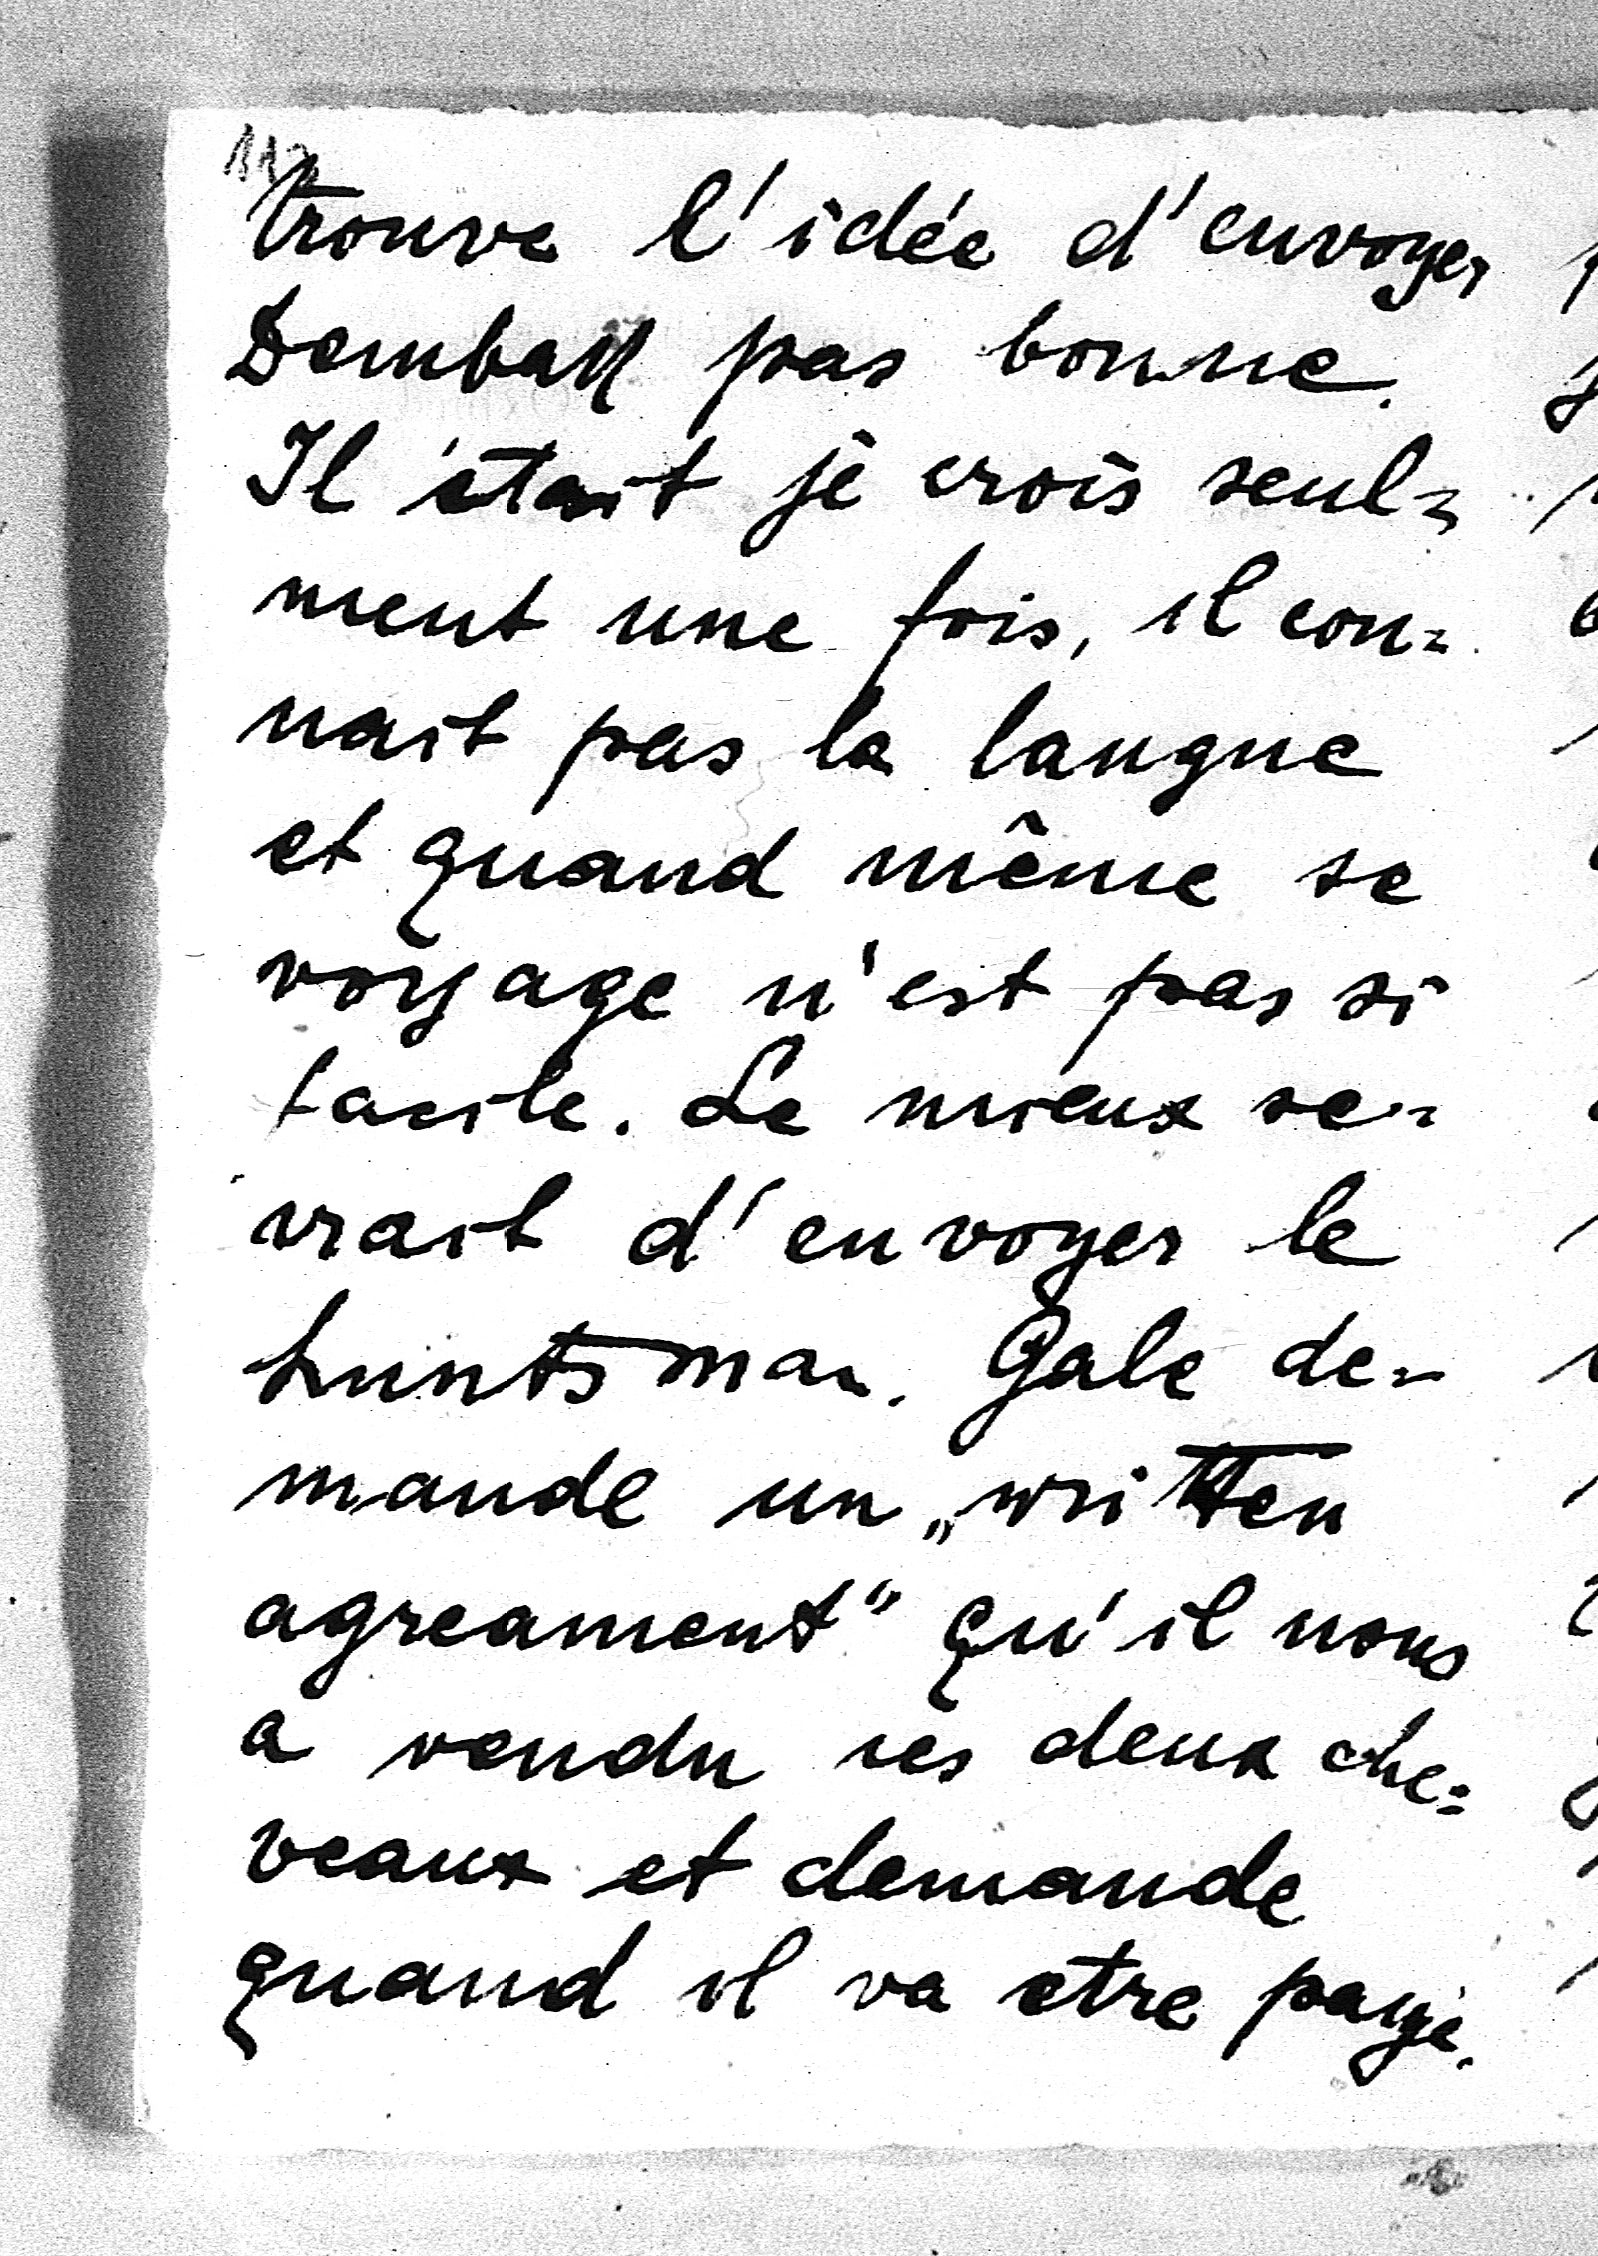 trouve l'idée d'envoyer
pas bonne.
Il était je crois seul=
ment une fois, il con=
nait pas la langue
et quand même se
voyage n'est pas si
facile. Le mieux se=
rait d'envoyer le
huntsman. Gale de=
mande un „written
agreament" qu'il nous
a vendu ces deux che=
veaux et demande
quand il va etre payé.